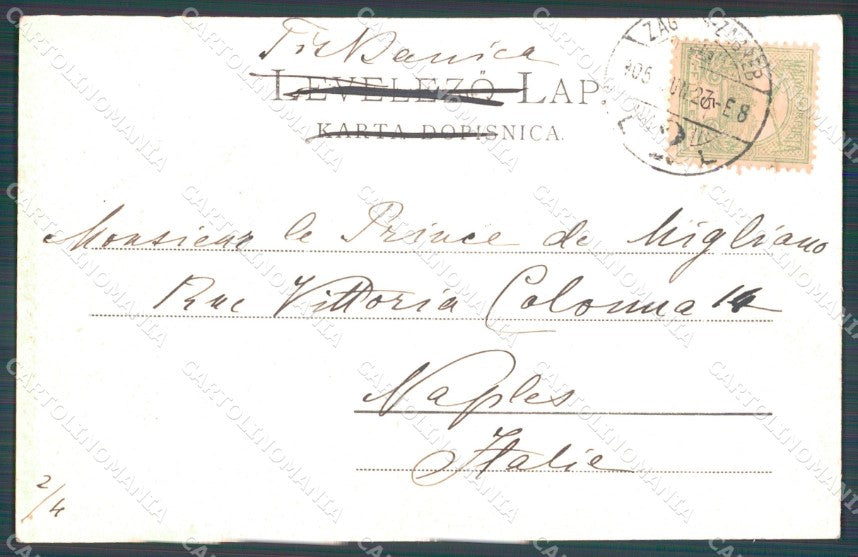 Tiskanica
LEVELEZŐ LAP.
KARTA DOPISNICA.
ZAG ZAGREB
Monsieur le Prince de Migliano
Rue Vittoria Colonna 14
Naples
Italie
2/4
CARTOLINOMANIA